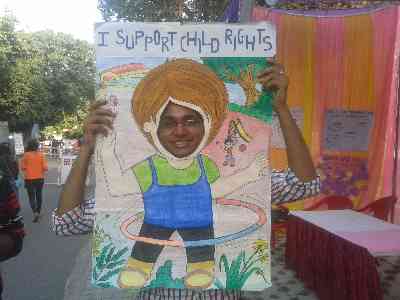 I SUPPORT CHILD RIGHTS